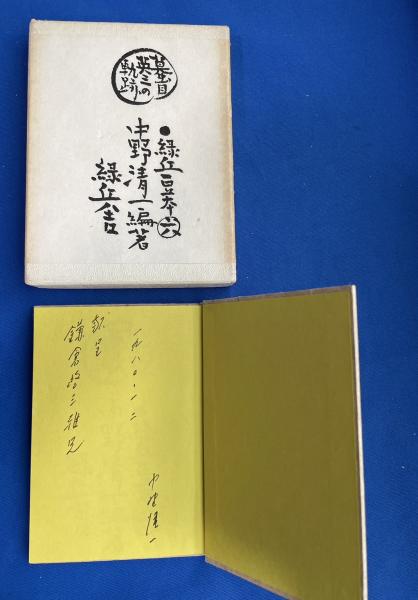 蟇目
英三の
軌跡
●緑丘豆本六
中野清一編著
緑丘舎
一九八〇・一二
献呈
鎌倉啓三雅兄
中野清一